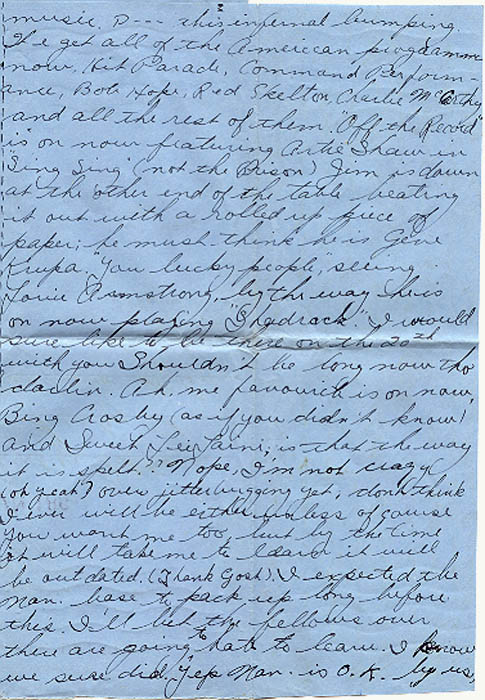 music. D--- this infernal bumping.
We get all of the American programme
now, Hit Parade, Command Perform-
ance, Bob Hope, Red Skelton, Charlie McCarthy
and all the rest of them. "Off the Record"
is on now featuring Artie Shaw in
"Sing Sing" (not the Prison) Jim is down
at the other end of the table beating
it out with a rolled up piece of
paper; he must think he is Gene
Krupa. "You lucky people", seeing
Louie Armstrong, by the way he is
on now playing I would
sure like to be there on the 20th
with you Shouldn't be long now tho
darlin. Ah, me favourite is on now,
Bing Crosby (as if you didn't know)
and Sweet is that the way
it is spelt?? Nope, I'm not crazy
(oh yeah") over jitterbugging yet, don't think
I ever will be either unless of course
you want me too, but by the time
it will take me to learn it will
be outdated. (Thank Gosh). I expected the
Man. base to pack up long before
this. I'll bet the fellows over
there are going to hate to leave. I know
we sure did. Yep Man. is O.K. by us,